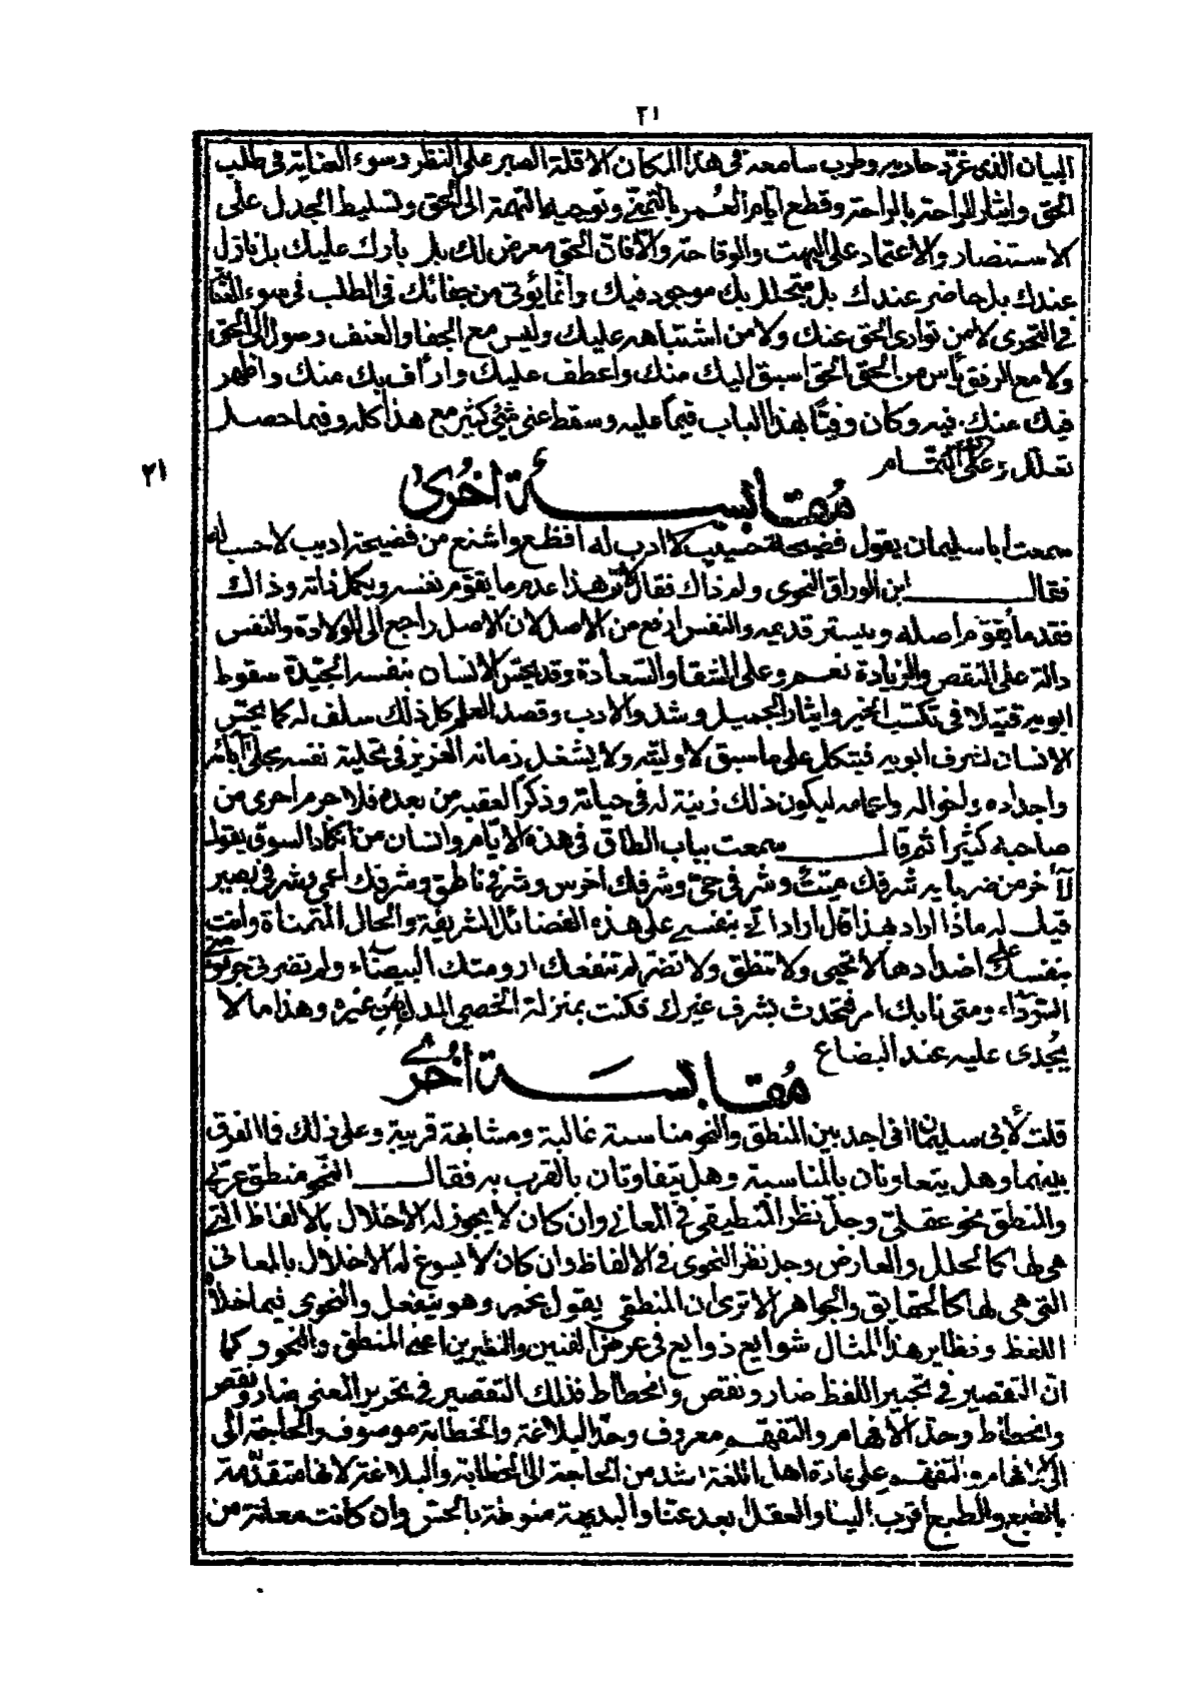 ٢١
البيان الذى غرّد حاديه وطرب سامعه فى هذا المكان الا قلة الصبر على النظر وسوء العناية فى طلب
الحق وايثار الراحة بالراحة وقطع ايام العمر بالتمنّي وتوجيه التهمة الى الحق وتسليط الجدل على
الاستنصار والاعتماد على البهت والوقاحة والّا فان الحق معرض لك بل بارك عليك بل نازل
عندك بل حاضر عندك بل متجلل بك موجود فيك وانما يؤتى من جفائك فى الطلب فى سوء
فى التحرى لا من توارى الحق عنك ولا من اشتباهه عليك وليس مع الجفا والعنف وصول الى الحق
ولا مع الرفق يأس من الحق الحق اسبق اليك منك واعطف عليك وارأف بك منك واظهر
فيك منك فيه وكان وفيّا بهذا الباب قيّما عليه وسقط عنى شئ كثير مع هذا كله وفيما حصل
تعلل على التمام
٢١
مُقابسة أخرى
سمعت أبا سليمان يقول فضيحة حسيب لا ادب له افظع واشنع من فضيحة اديب لا حسب له
فقال ابن الوراق النحوى ولم ذاك فقال لأنّ هذا عدم ما يقوّم نفسه ويكمل ذاته وذالك
فقد ما يقوّم أصله ويستر قديمه والنفس ارفع من الاصل لان الاصل راجع الى الولادة والنفس
دالة على النقص والزيادة نعم وعلى الشقا والسعادة وقد يحسّ الانسان بنفسه الجيّدة سقوط
ابويه قتيلا فى تكسّب الخير وايثار الجميل وشد والادب وقصد العلم كل ذلك سلف له كما يحسّ
الانسان لشرف ابويه فيتكل على ما سبق لأوليته ولا يشغل زمانه العزيز فى تحلية نفسه بحلى آبائه
واجداده واخواله واعمامه ليكون ذلك زينة له فى حياته وذكراً لعقبه من بعده فلا جرم احرى من
صاحبه كثيراً ثم قال سمعت بباب الطاق فى هذه الايّام وانسان من انكاد السوق يقول
لآخر من ضربايه شرفك ميّت وشرفى حىّ وشرفك أخرس وشرفى ناطق وشرفك أعمى وشرفى بصير
قيل له ماذا اراد بهذا قال اراد انى بنفسى على هذه الفضائل الشريفة والحال المتمناة وانت
بنفسك على اضدادها لا تحيى ولا تنطق ولا تضر لم تنفعك ارومتك البيضاء ولم تضرنى جرثومتى
السوداء ومتى نابك امر فتحدث بشرف غيرك فكنت بمنزلة الخصى المدل غيره وهذا ما لا
يُجدى عليه عند البضاع
مُقابسة اخرى
قلت لأبى سليمان انى اجد بين المنطق والنحو مناسبة غالبة ومشابهة قريبة وعلى ذلك فما الفرق
بينهما وهل يتعاونان بالمناسبة وهل يتفاوتان بالقرب به فقال النحو منطق عربى
والمنطق نحو عقلىّ وجلّ نظر المنطيقى فى المعانى وان كان لا يجوز له الاخلال بالالفاظ التى
هى لها كالحلل والمعارض وجل نظر النحوى فى الالفاظ وان كان لا يسوغ له الاخلال بالمعانى
التى هى لها كالحقايق والجواهر الا ترى ان المنطقى يقول يخبر وهو ينفعل والنحوى فيما خلا
اللفظ ونظاير هذا المثال شوايع ذوايع فى عرض الفنين والنظيرين اعنى المنطق والنحو وكما
انّ التقصير فى تحبير اللفظ ضار ونقص وانحطاط فذلك التقصير فى تحرير المعنى ضار ونقص
وانحطاط وحدّ الافهام والتفهم معروف وحدّ البلاغة والخطابة موصوف والحاجة الى
الى الافهام والتفهم على عادة اهل اللغة اشد من الحاجة الى الخطابة والبلاغة لانها متقدّمة
بالطبع والطبع أقرب الينا والعقل ابعد عنّا والبديهة منوطة بالحسّ وان كانت معانة من